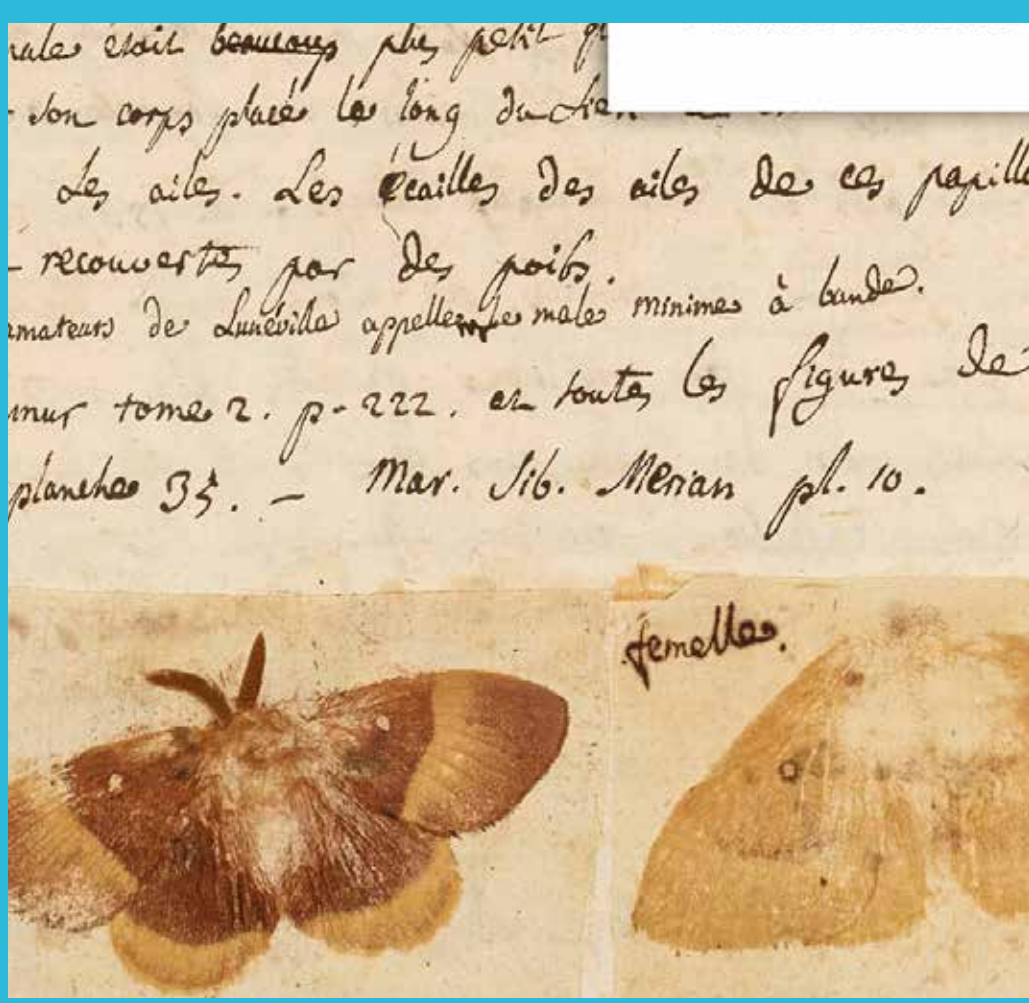 male étoit beaucoup plus petit
son corps placé le long du sien
les ailes. Les écailles des ailes de ces papill
recouvertes par des poils.
amateurs de Lunéville appellent le male minime à bande.
mur tome 2. p. 222. et toutes les figures de
planche 35. - Mar. Sib. Merian pl. 10.
femelle.